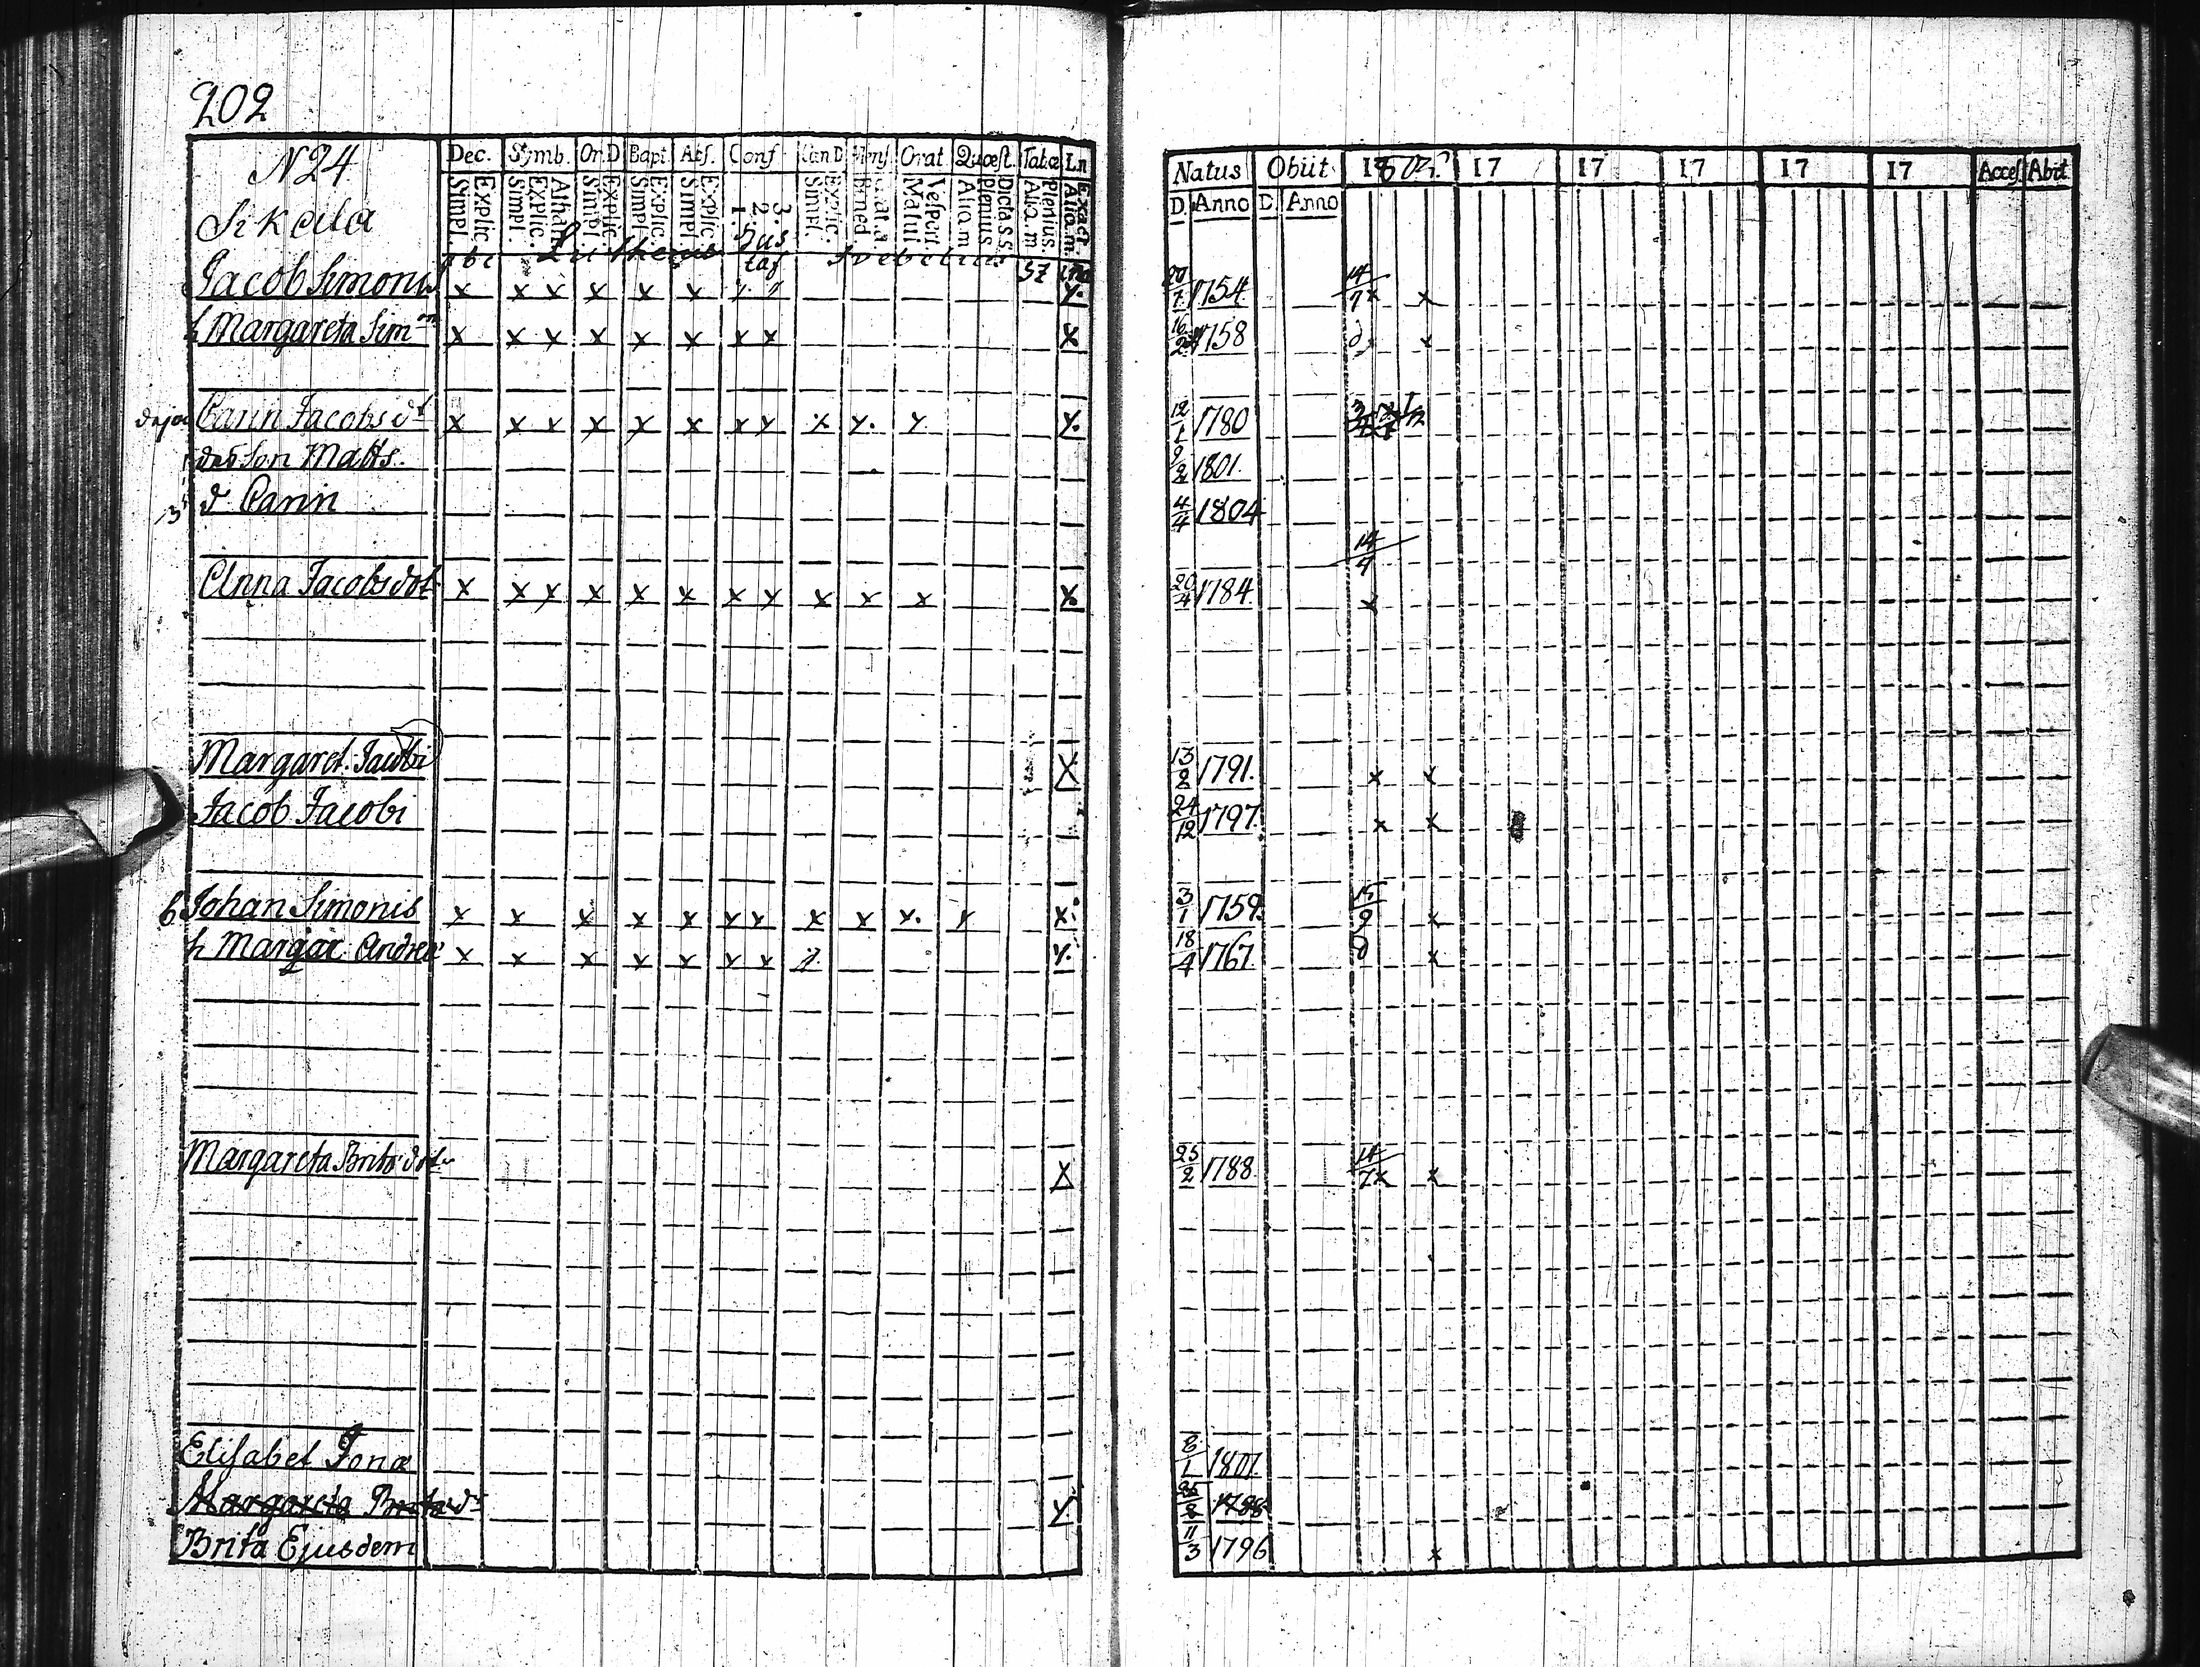 202
N 24
Sikala
Dec. Symb. Or. D Bapt. Abs. Conf Cœn D Mens. Orat. Quæst. Tabæ Ln
Explic. Simpl. Athan. Explic. Simpl. Explic. Simpl. Explic. Simpl. Explic. Simpl. 3. 2. 1. Explic. Simpl. Bened. Vespert. Matut. Dicta s.s. plenius Aliq.m Plenius. Aliq.m Exact. Aliq.m.
abc Lutherus Hus taf Svebelius
Natus Obiit 1805. 17 17 17 17 17 Acces. Abit
D. Anno D. Anno
Jacob Simonis x x x x x x x x 1754 14/7 x x
h Margareta Sim on x x x x x x x x x 16/2 1758 x x
Carin Jacobs dt x x x x x x x x x x x x 12/1 1780
Son Matts. 9/2 1801.
d Carin 4/4 1804
Anna Jacobsdot x x x x x x x x x x x x 20/4 1784 14/4 x
Margaret. Jacobi X 13/8 1791. x x
Jacob Jacobi 24/12 1797. x x
b Johan Simonis x x x x x x x x x x x x 3/1 1759. 15/9 x
h Margar. Andreæ x x x x x x x x 18/4 1767. x
Margareta Brita dotr X 25/2 1788 14/7 x x
Elisabet Jonæ 6/1 1801.
Margareta Brita dt x 1788
Brita Ejusdem 11/3 1796 x